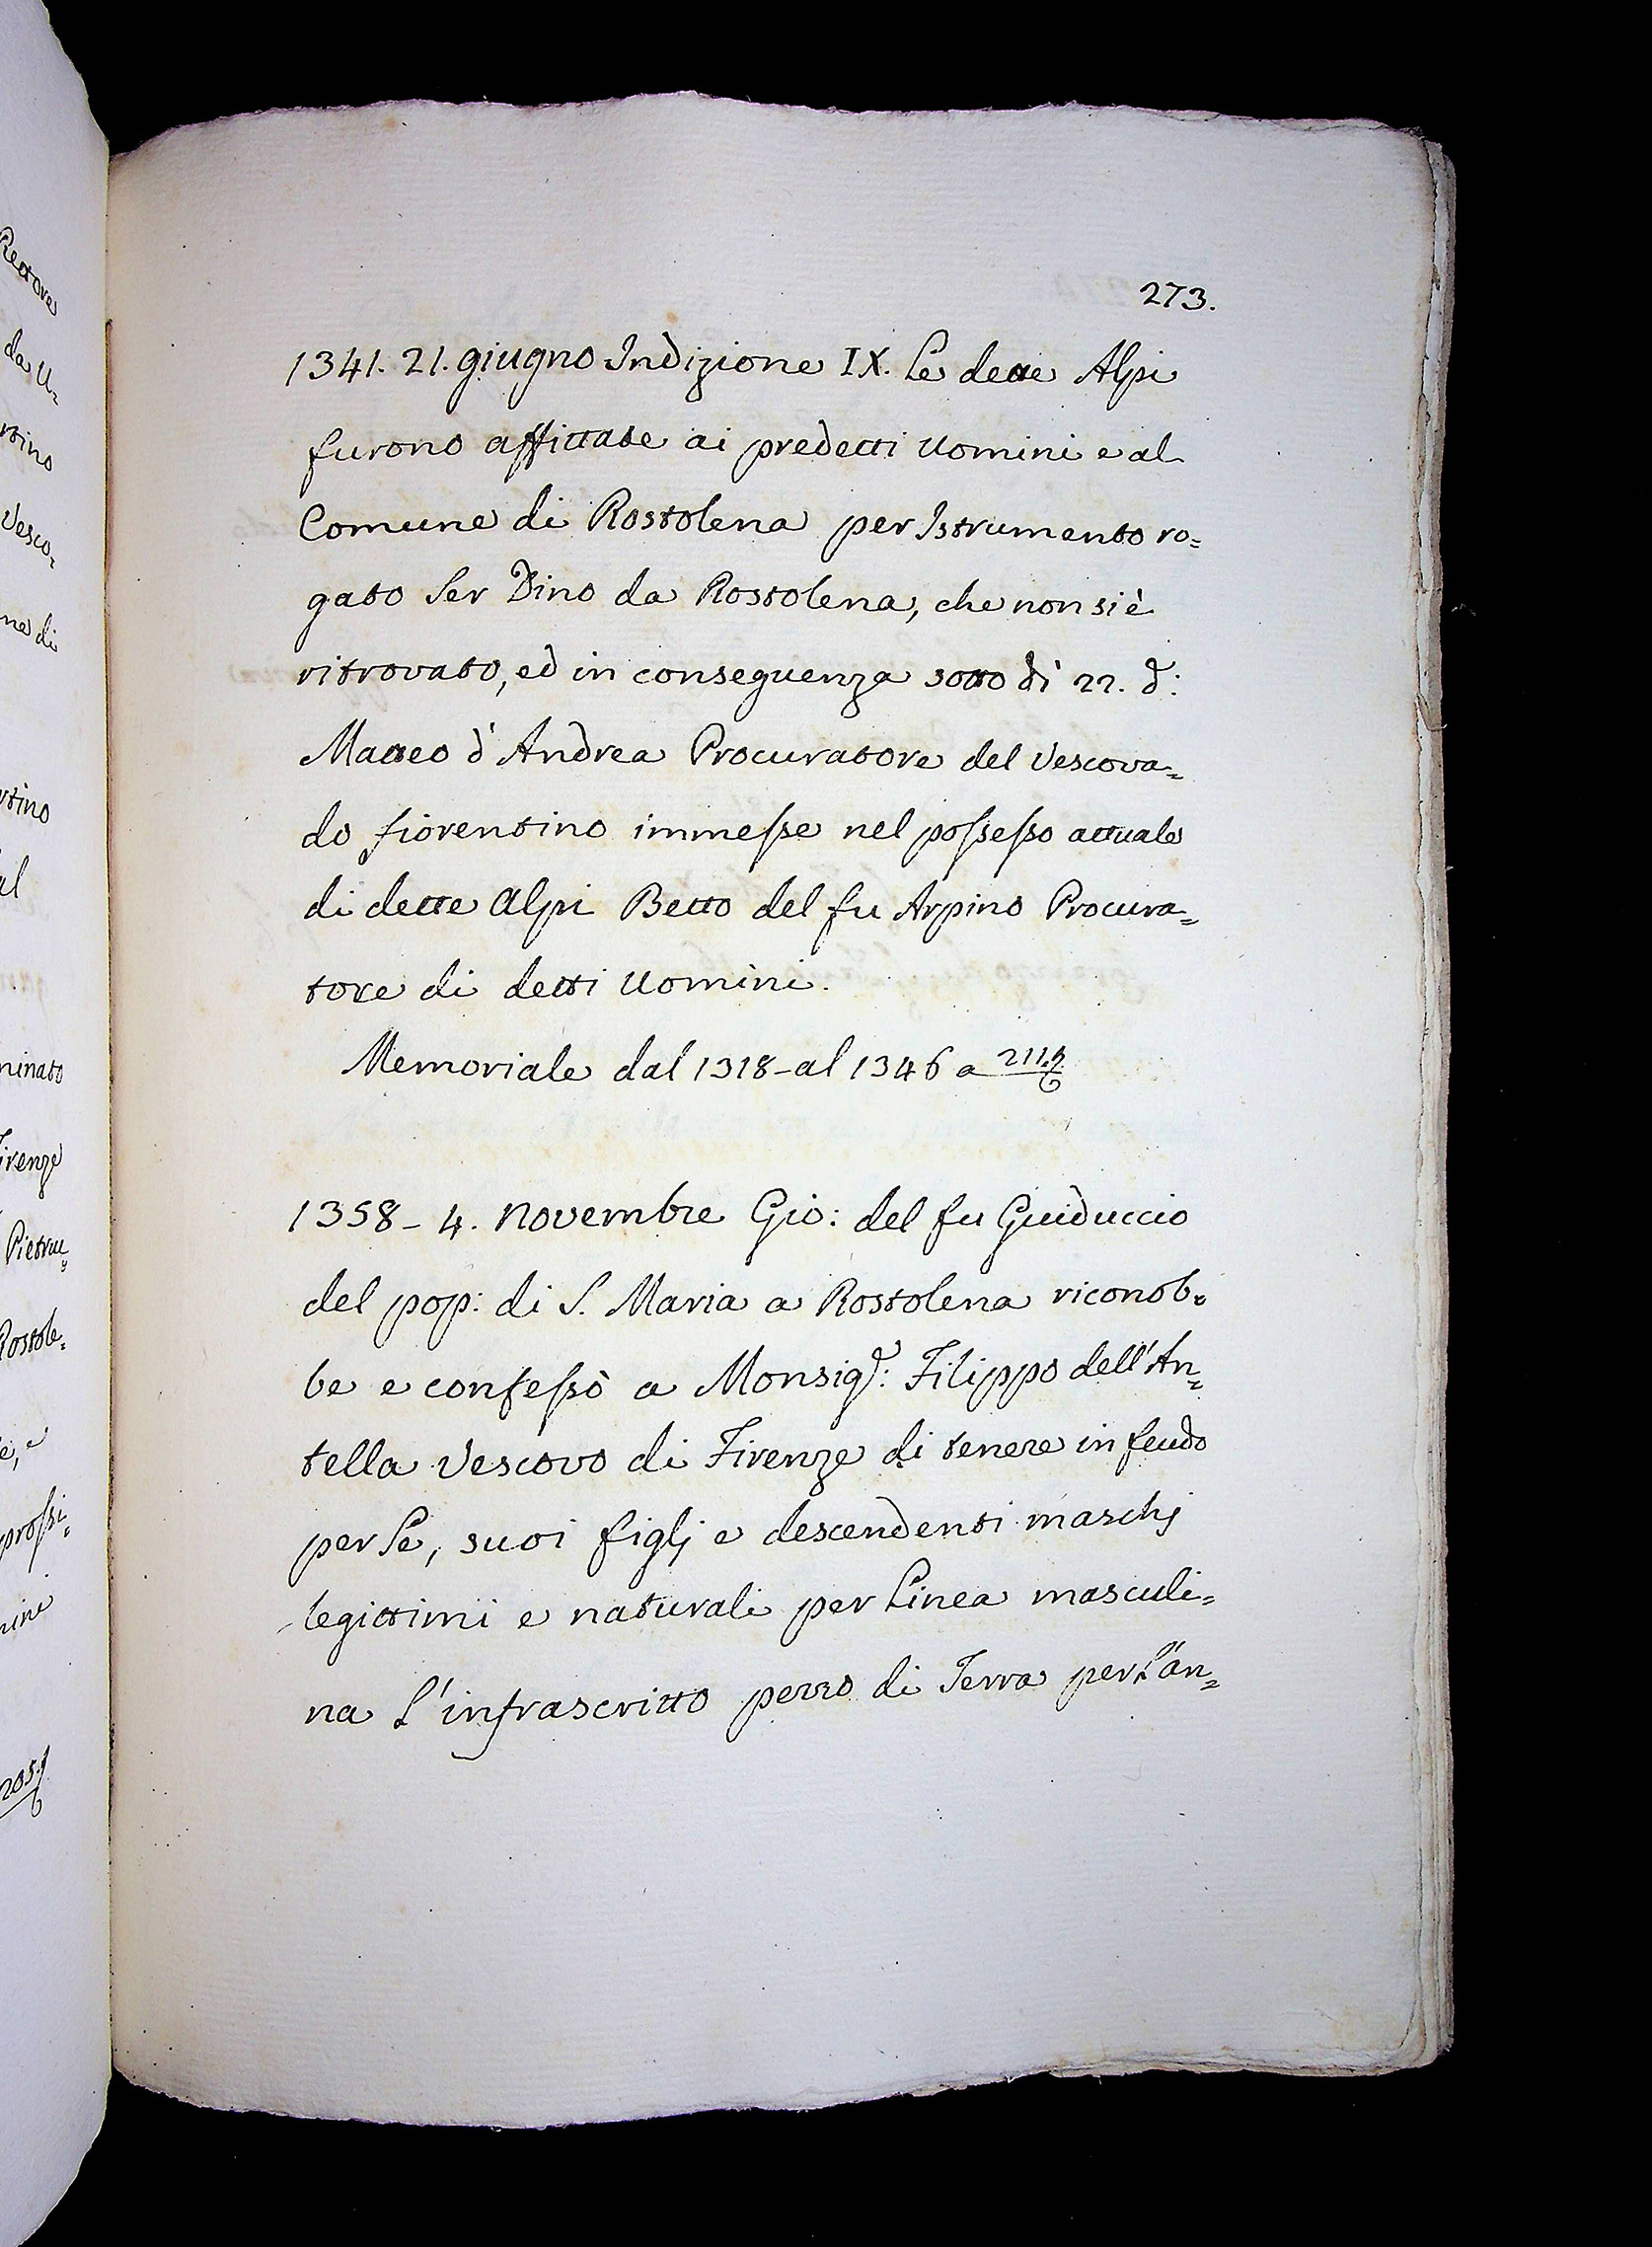 273.
1341. 21. giugno Indizione IX. Le dette Alpi
furono affittate ai predetti Uomini e al
Comune di Rostolena per Istrumento ro=
gato Ser Dino da Rostolena, che non si è
ritrovato, ed in conseguenza sotto dì 22. d:
Matteo d'Andrea Procuratore del Vescova=
do fiorentino immesse nel possesso attuale
di dette Alpi Betto del fu Arpino Procura=
tore di detti Uomini.
Memoriale dal 1318 - al 1346 a 211.
1358 - 4. Novembre Gio: del fu Guiduccio
del pop: di S. Maria a Rostolena riconob=
be e confessò a Monsig.r: Filippo dell'An=
tella Vescovo di Firenze di tenere in feudo
per Se, suoi figlj e descendenti maschj
legittimi e naturali per Linea masculi=
na L'infrascritto pezzo di Terra per L'an=
Rettore
da U=
rtino
Vesco=
ne di
rtino
al
minato
irenze
Pietru=
Rostole=
e, e
prossi=
mini
205.